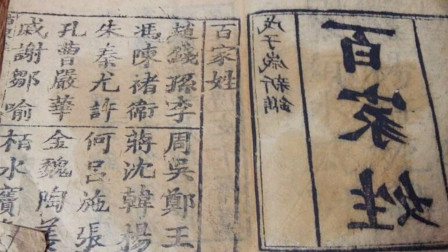 百家姓
戊子歲新鐫
百家姓
趙錢孫李 周吳鄭王
馮陳褚衛 蔣沈韓楊
朱秦尤許 何呂施張
孔曹嚴華 金魏陶姜
戚謝鄒喻 柏水竇